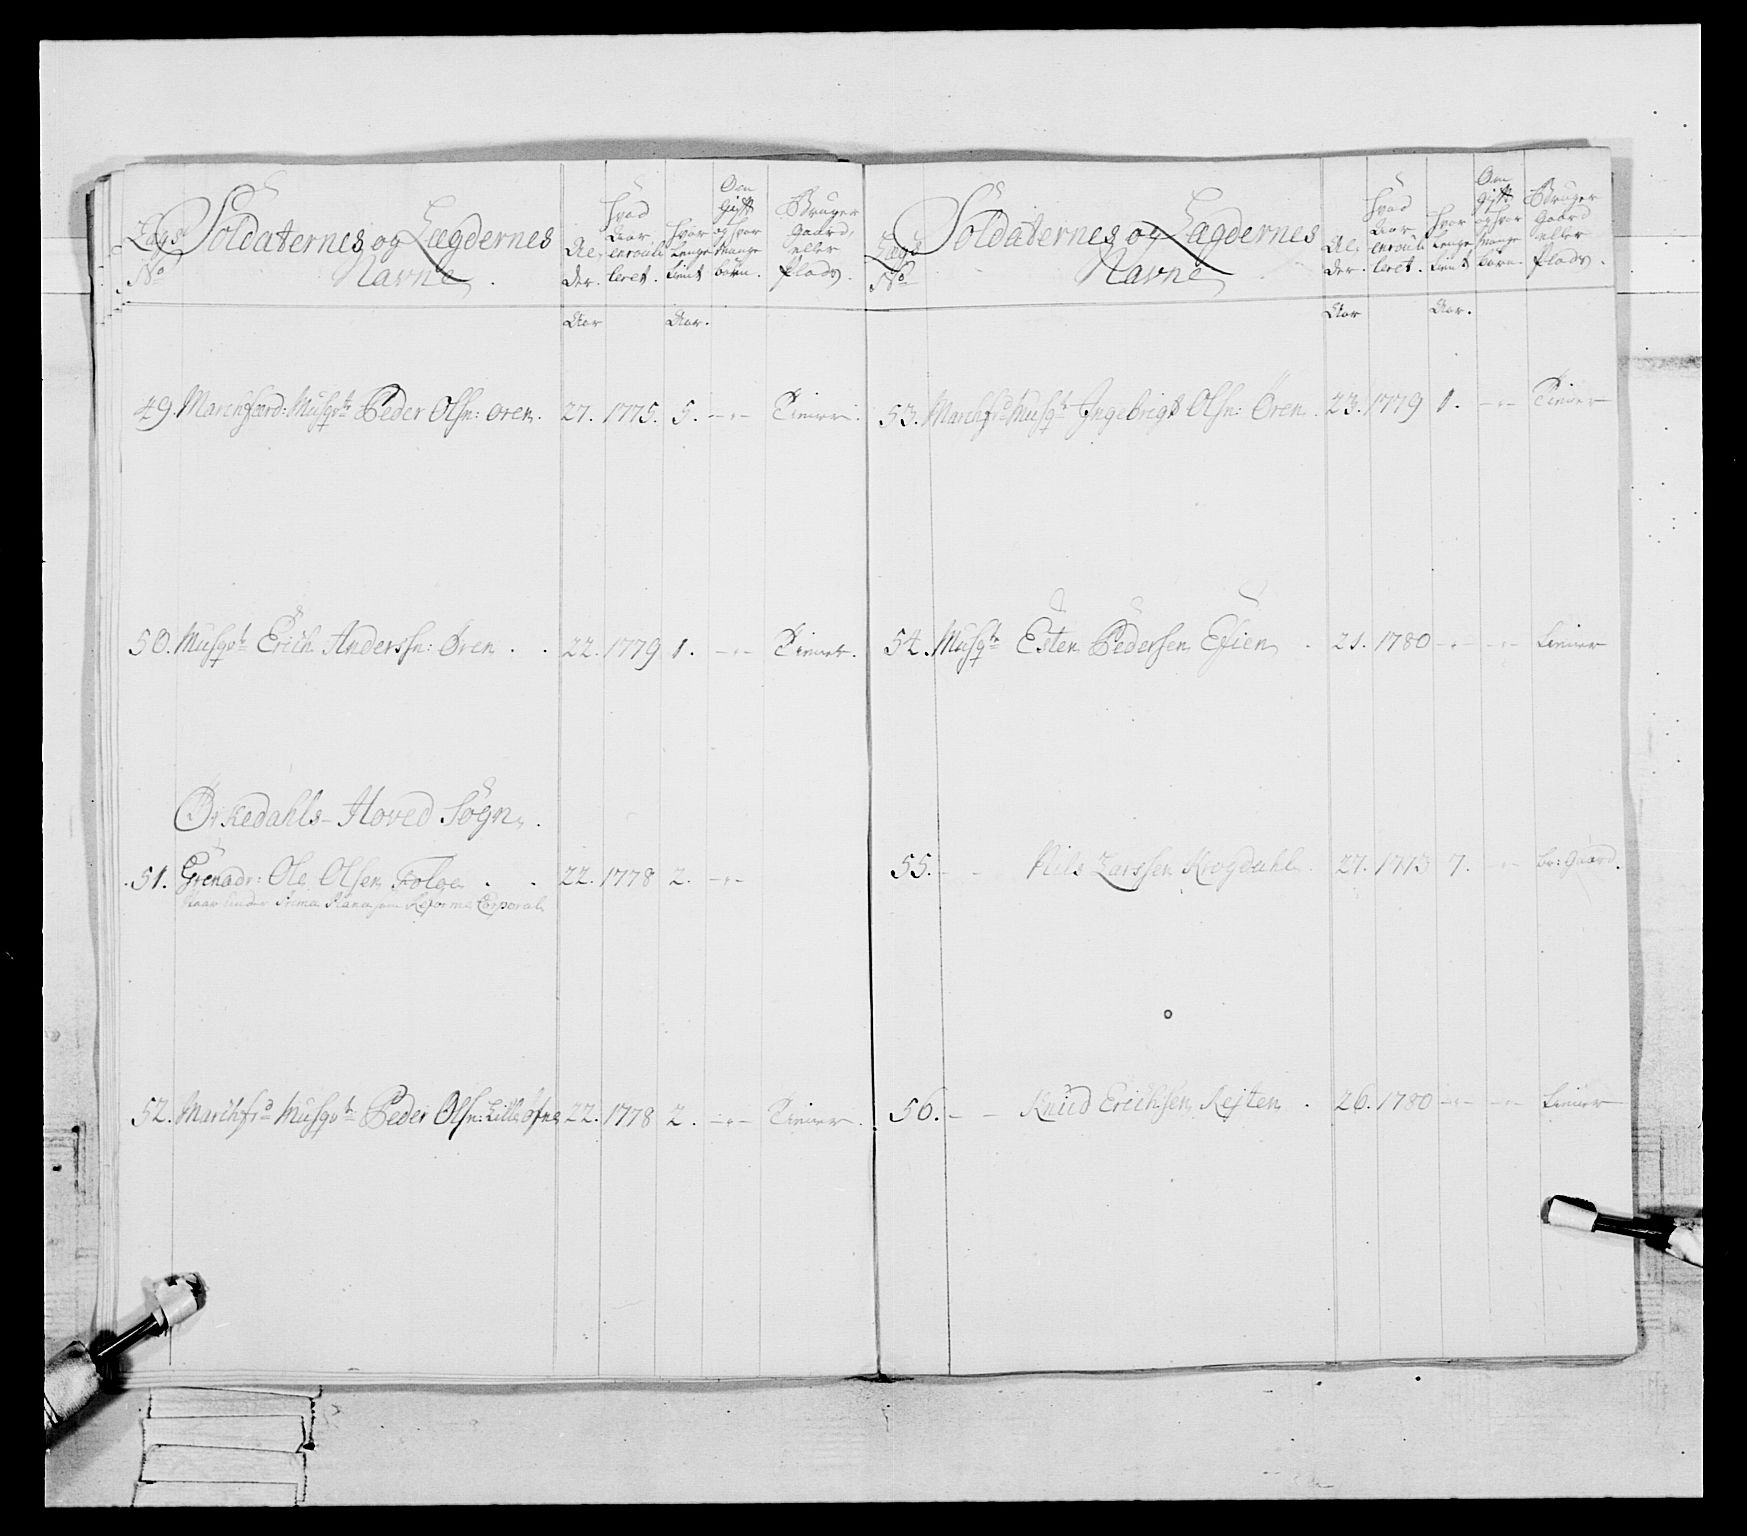 Lægs No
Soldaternes og Lægdernes Navne.
Al-der.
Hvad Aar enroulleret.
Hvor Lenge tient
Om Gift og hvor Mange börn.
Bruger Gaard, eller Plads.
Aar
Aar.
49. Marchfærd: Musqvtr Peder Olsn: Ören. 27. 1775. 5. -"- Tiener.
50. Musqvtr Erich Anderssn: Ören . . 22. 1779 1. -"- Tiener.
Örkedahls-Hoved Sogn.
51. Grenadr: Ole Olsen Folge . . 22. 1778 2. -"-
Staar under Prima Plana som Reforme Corporal
52. Marchfrd Musqvtr Peder Olsn: Litle 22. 1778 2. -"- Tiener.
Lægs No
Soldaternes og Lægdernes Navne
Al-der.
Hvad Aar enroulleret.
Hvor Lenge tient
Om Gift og hvor Mange börn.
Bruger Gaard eller Plads.
Aar
Aar.
53. Marchfrd Musqtr Ingebrigt Olsn: Ören. 23. 1779 1. -"- Tiener
54. Musqtr Esten Pedersen . 21. 1780 -"- -"- tiener
55. - - Nils Larssen Krogdahl . 27. 1773 7. -"- br: Gaard.
56. - - Knud Erichsen . 26. 1780 -"- -"- tiener